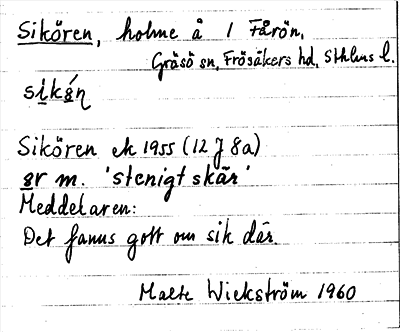 Siköre̲n, holme å 1 Fårön,
Gräsö sn, Frösåkers hd, Sthlms l.
Sikören ek 1955 (12 J 8a)
ör m. 'stenigt skär'
Meddelaren:
Det fanns gott om sik där.
Malte Wickström 1960